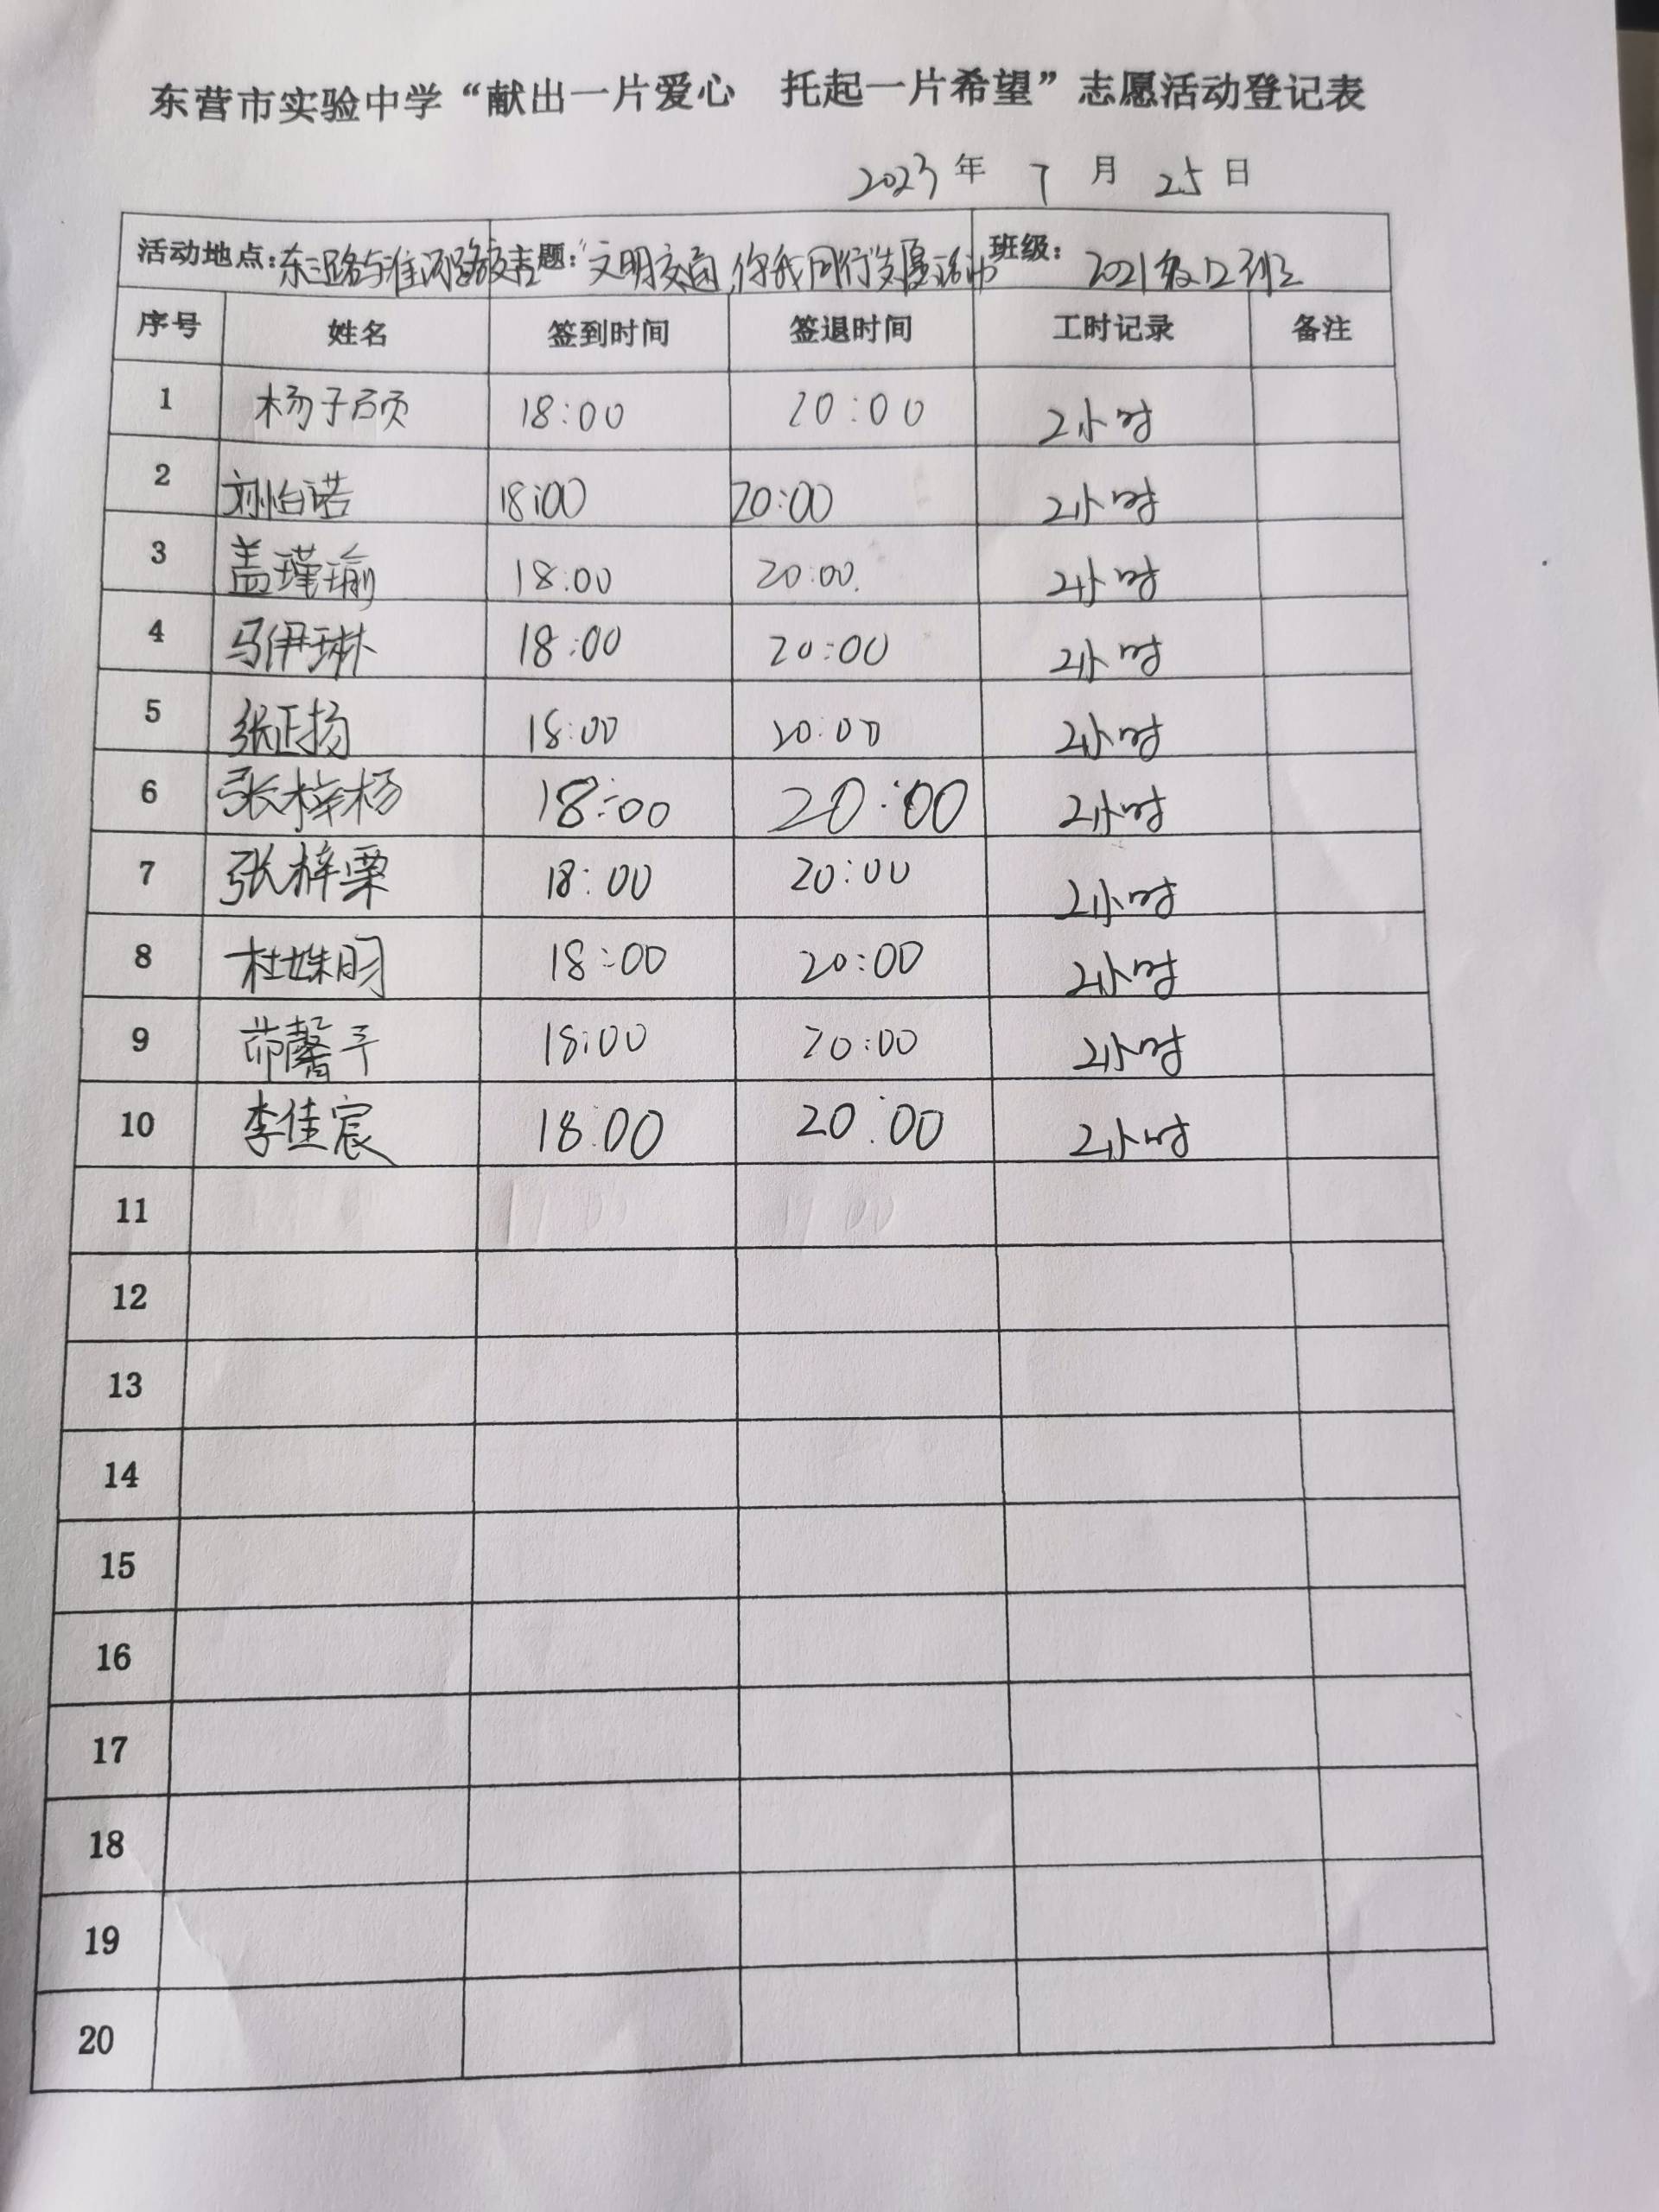 东营市实验中学“献出一片爱心 托起一片希望”志愿活动登记表
2023 年 7 月 25 日
活动地点：东三路与淮河路交 主题：“文明交通,你我同行”志愿活动 班级： 2021级12班
序号 姓名 签到时间 签退时间 工时记录 备注
1 杨子硕 18:00 20:00 2小时
2 刘怡诺 18:00 20:00 2小时
3 盖瑾瑜 18:00 20:00. 2小时
4 马伊琳 18:00 20:00 2小时
5 张正扬 18:00 20:00 2小时
6 张梓杨 18:00 20:00 2小时
7 张梓栗 18:00 20:00 2小时
8 杜姝玥 18:00 20:00 2小时
9 馨予 18:00 20:00 2小时
10 李佳宸 18:00 20:00 2小时
11
12
13
14
15
16
17
18
19
20